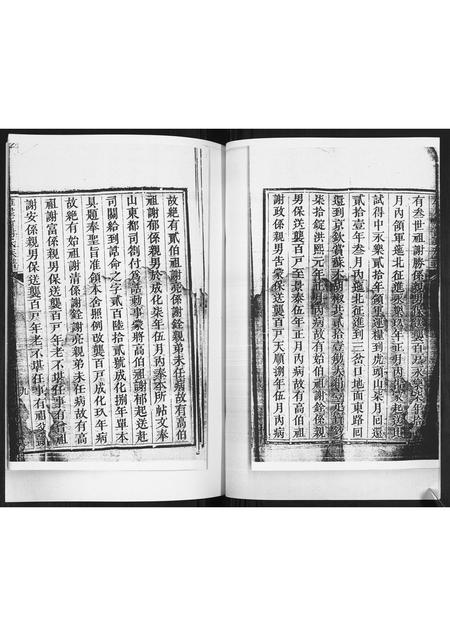 有叁世祖謝勝係親男保送襲百戶永樂柒年
月內領軍進北征進永樂玖年正月內蒙起送
試得中永樂貳拾年領軍運糧到虎頭山柒月回還
貳拾壹年叁月內進北征進到三岔口地面東路回
還到京欽賞蘇木胡椒共貳拾壹
柒拾錠洪熙元年正月內病故有始伯祖謝銓係親
男保送襲百戶至景泰伍年正月內病故有高伯祖
謝政係親男告蒙保送襲百戶天順捌年伍月內病
故絶有貳伯祖謝亮係謝銓親弟未任病故有高伯
祖謝郁係親男於成化柒年伍月內奉本所帖文奉
山東都司劄付為誥勅事蒙將高伯祖謝郁起送赴
司關給到誥命之字貳百陸拾貳號成化捌年單本
具題奉聖旨准領本舍照例改襲百戶成化玖年病
故絶有始祖謝清係謝銓謝亮親弟未任病故有高
祖謝富係親男保送襲百戶年老不堪任事有曾祖
謝安係親男保送襲百戶年老不堪任事有祖
九